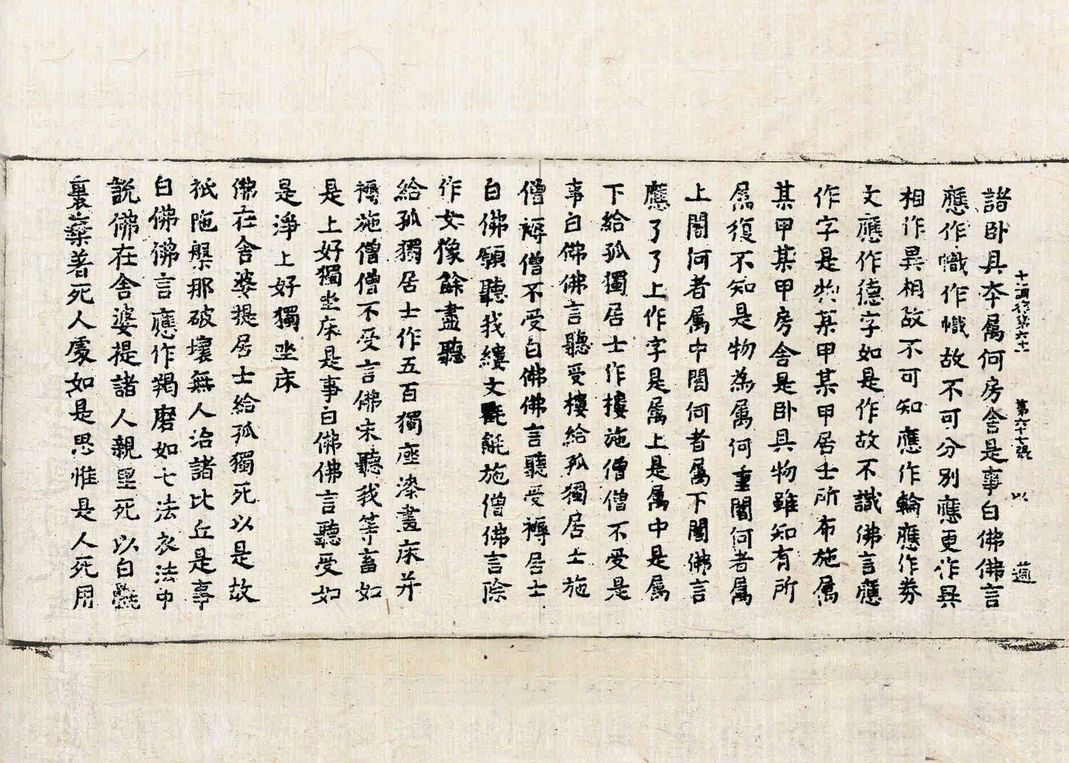 諸卧具本属何房舍是事白佛佛言
應作幟作幟故不可分別應更作異
相作異相故不可知應作輪應作券
文應作德字如是作故不識佛言應
作字是物某甲某甲居士所布施属
某甲某甲房舍是卧具物雖知有所
属復不知是物為属何重閣何者属
上閣何者属中閣何者属下閣佛言
應了了上作字是属上是属中是属
下給孤獨居士作樓施僧僧不受是
事白佛佛言聽受樓給孤獨居士施
僧褥僧不受白佛佛言聽受褥居士
白佛願聽我縷文氍毹施僧佛言除
作女像餘盡聽
給孤獨居士作五百獨座漆畫床并
褥施僧僧不受言佛未聽我等畜如
是上好獨坐床是事白佛佛言聽受如
是淨上好獨坐床
佛在舍婆提居士給孤獨死以是故
祇陁槃那破壞無人治諸比丘是事
白佛佛言應作羯磨如七法衣法中
說佛在舍婆提諸人親里死以白㲲
裹棄著死人處如是思惟是人死用
十誦律第六十 第六七張 以 適